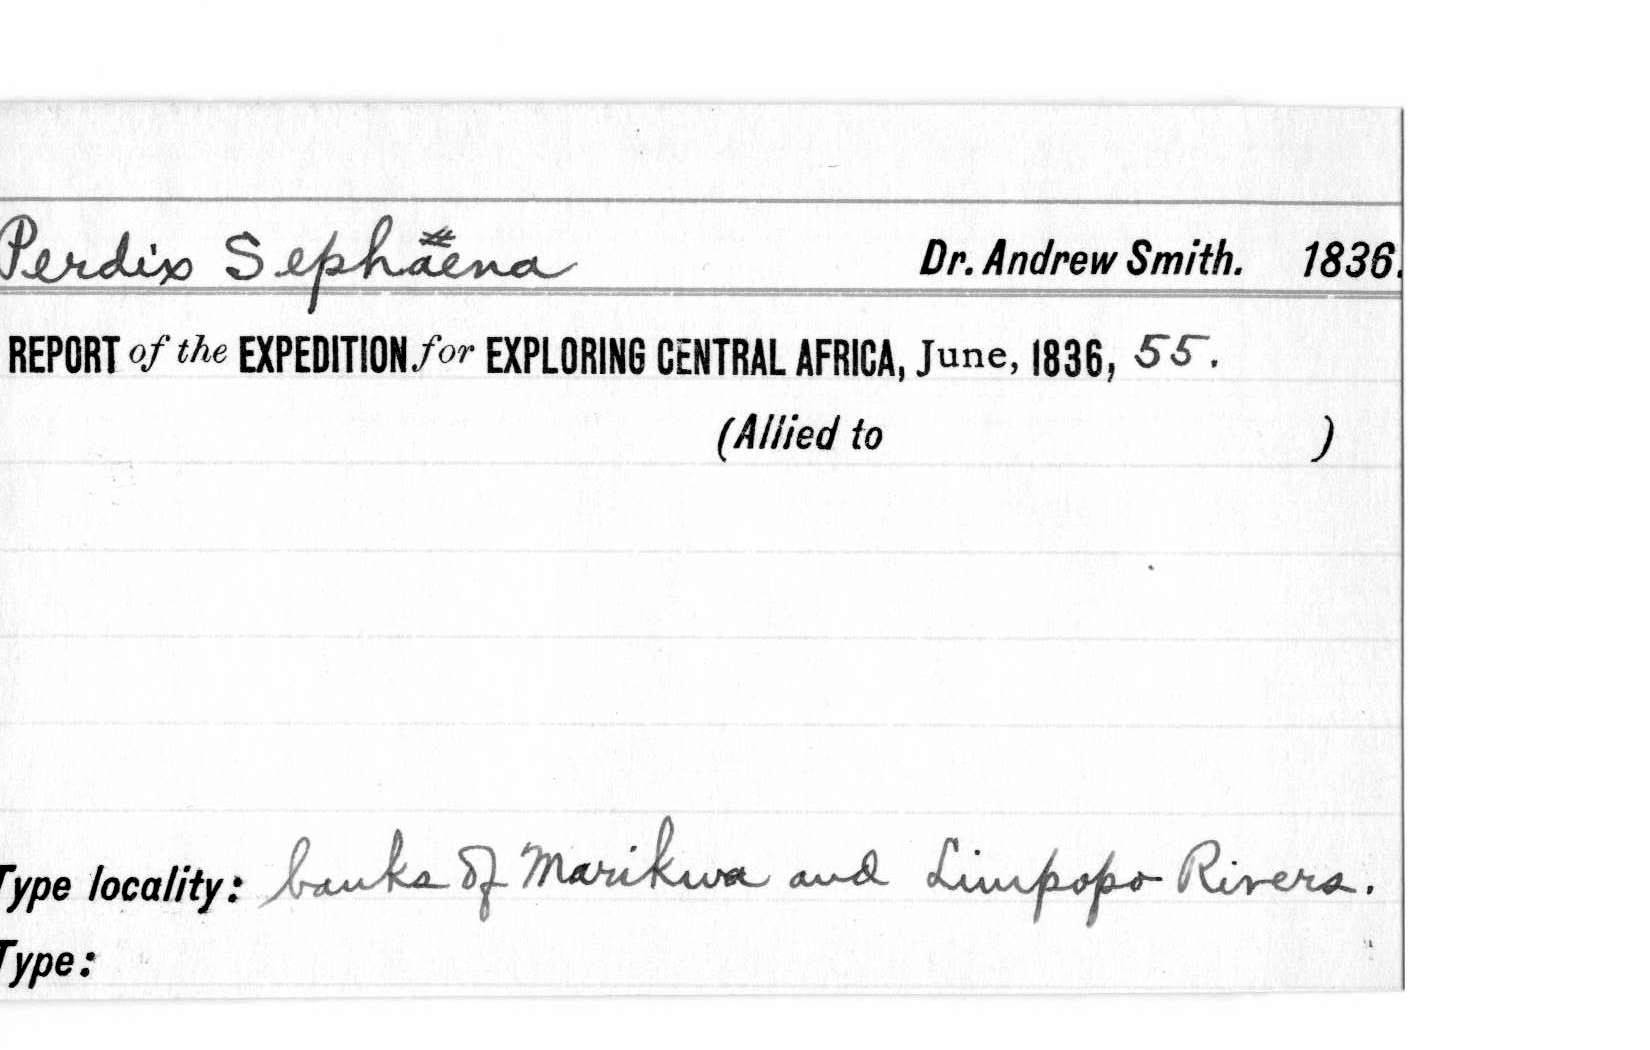 Perdix Sephäena Dr. Andrew Smith. 1836.
REPORT of the EXPEDITION for EXPLORING CENTRAL AFRICA, June, 1836, 55.
(Allied to )
Type locality: banks of Marikwa and Limpopo Rivers.
Type: